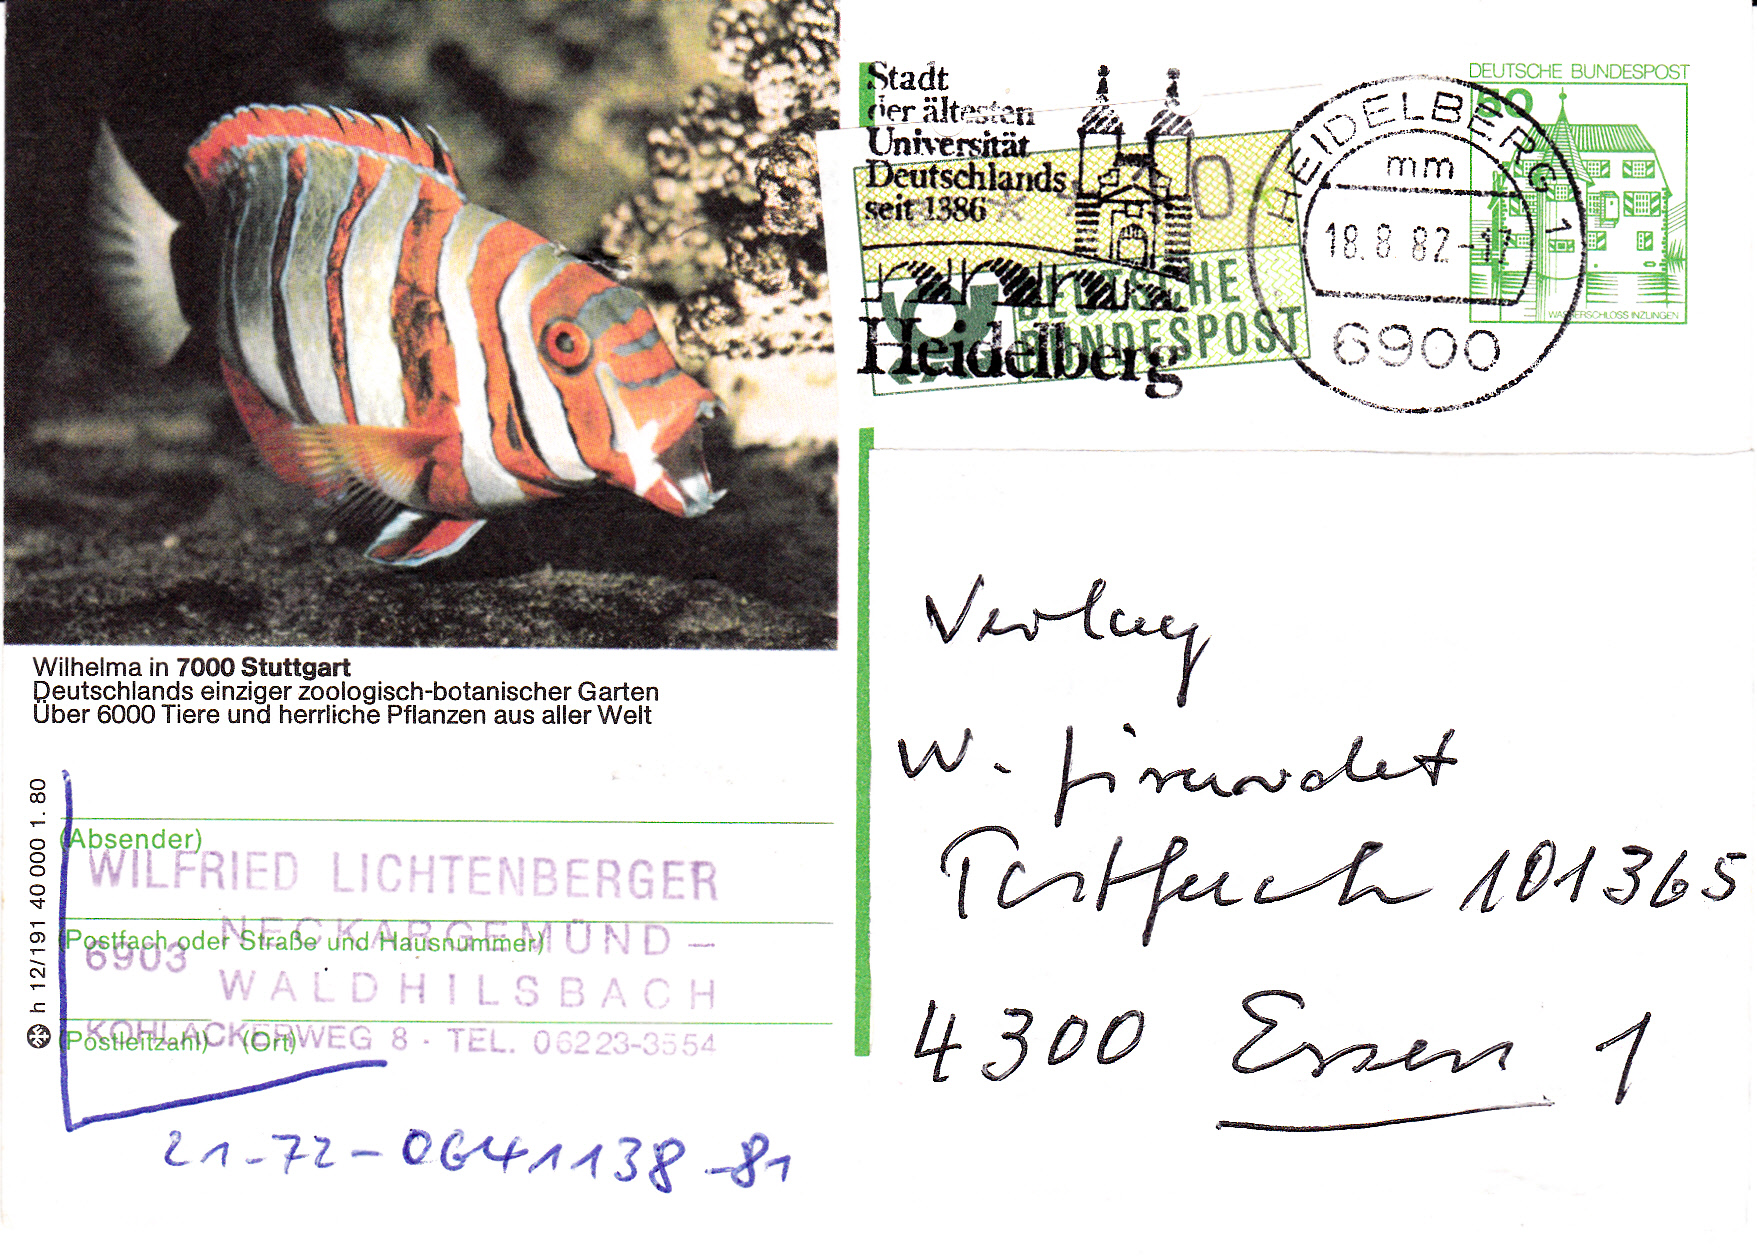 Wilhelma in 7000 Stuttgart
Deutschlands einziger zoologisch-botanischer Garten
Über 6000 Tiere und herrliche Pflanzen aus aller Welt
h 12/191 40 000 1.80
(Absender)
WILFRIED LICHTENBERGER
(Postfach oder Straße und Hausnummer)
6903 NECKARGEMÜND-
WALDHILSBACH
(Postleitzahl) (Ort)
KOHLACKERWEG 8 · TEL. 06223-3554
21-72-0641138-81
Stadt
der ältesten
Universität
Deutschlands
seit 1386
Heidelberg
DEUTSCHE
BUNDESPOST
HEIDELBERG 1
mm
18.8.82-17
6900
DEUTSCHE BUNDESPOST
WASSERSCHLOSS INZLINGEN
Verlag
W. Girardet
Postfach 101365
4300 Essen 1